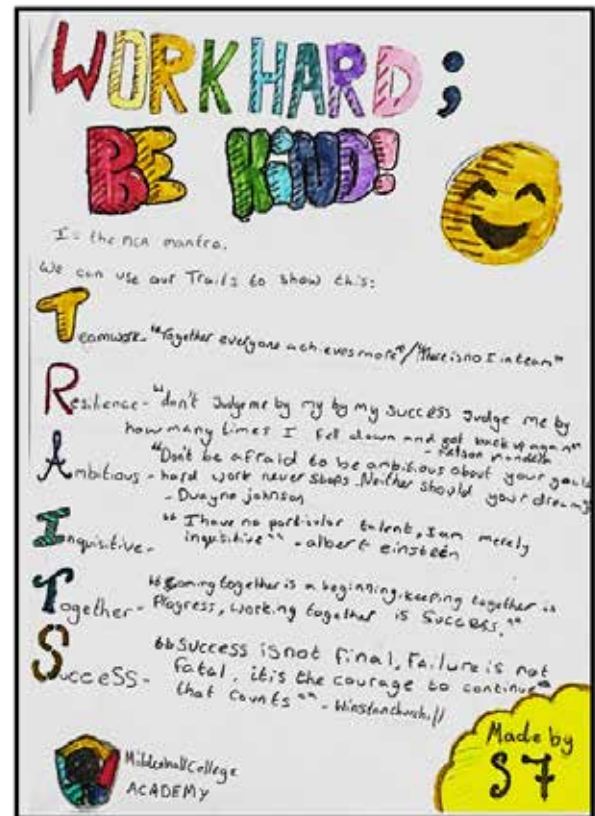 WORK HARD;
BE KiND!
Is the MCA mantra.
We can use our Traits to show this:
Teamwork- "Together everyone achieves more"/"There is no I in team"
Resilience- "don't Judge me by my by my success Judge me by
how many times I fell down and got back up again"
- Nelson Mandela
"Don't be afraid to be ambitious about your goals
Ambitious - hard work never stops. Neither should your dreams"
- Dwayne johnson
"I have no particular talent, I am merely
Inquisitive- inquisitive" - albert einsteen
"Coming together is a beginning, keeping together is
Together- Progress, working together is Success."
"Success is not final, Failure is not
fatal, it is the courage to continue
SucceSS- that counts" - Winstonchurchill
MildenhallCollege
ACADEMY
Made by
S7